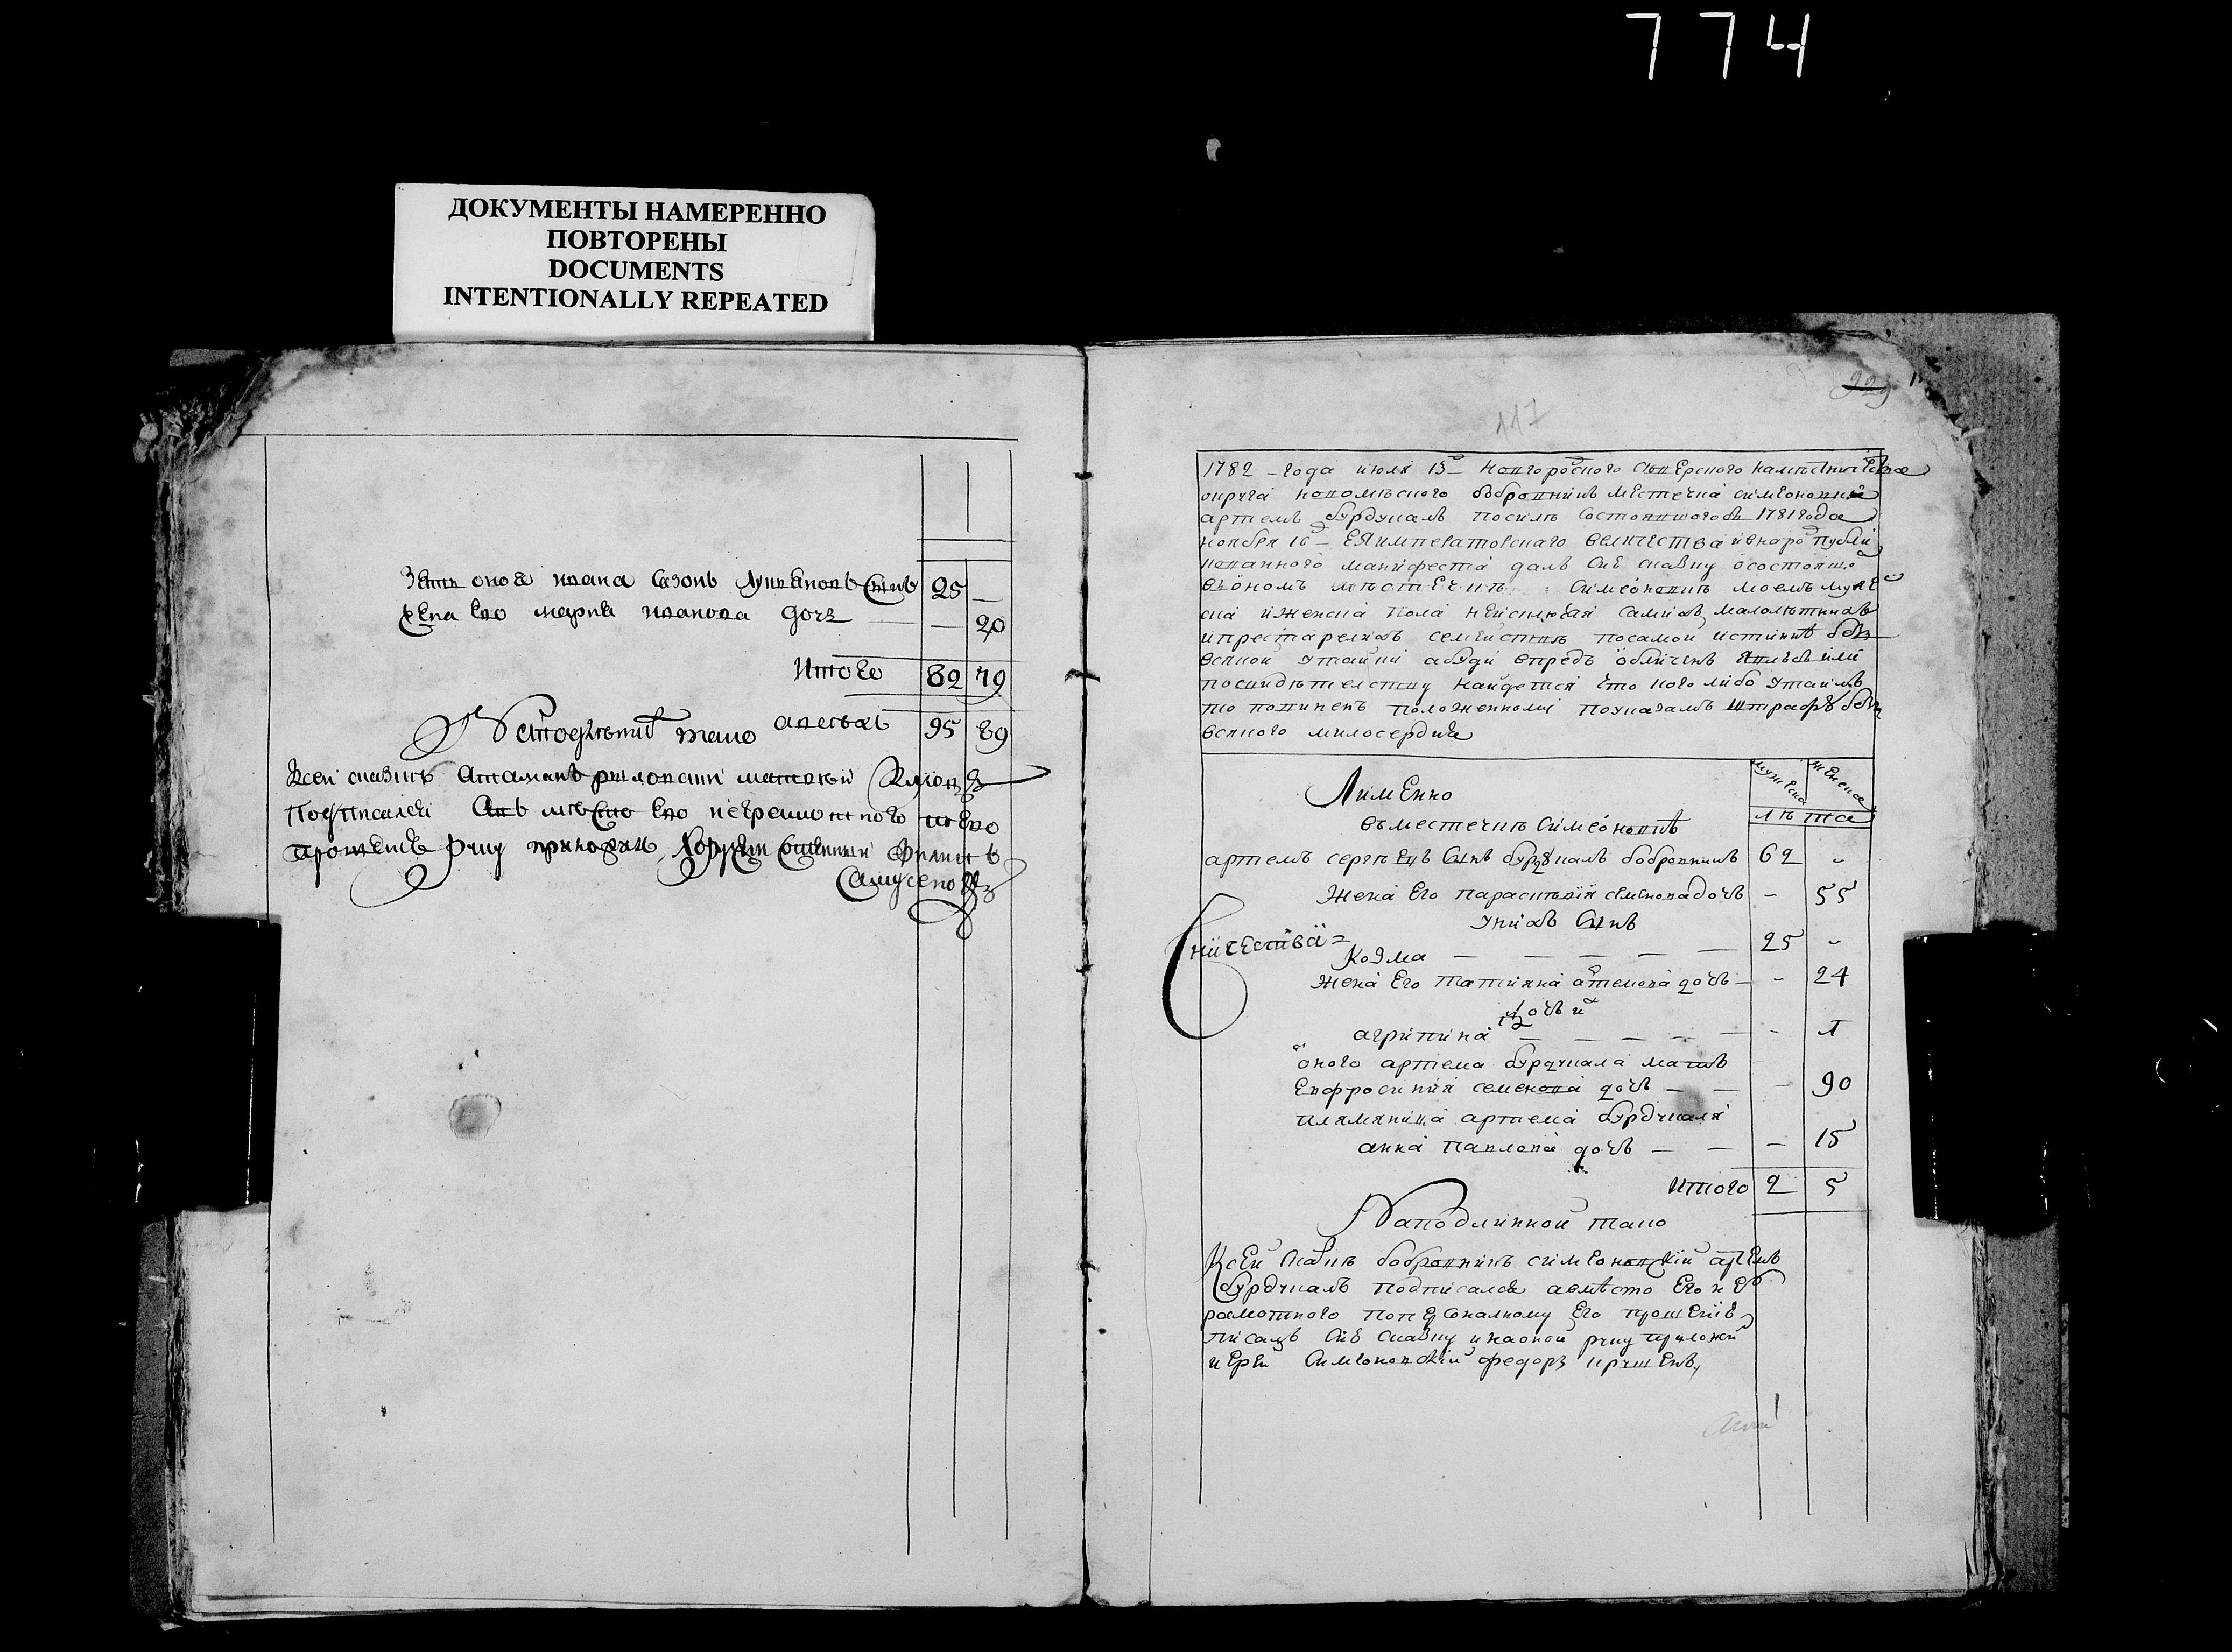 774
ДОКУМЕНТЫ НАМЕРЕННО
ПОВТОРЕНЫ
DOCUMENTS
INTENTIONALLY REPEATED
Зять оноя ивана Сазонъ Лукяновъ Снъ 25 —
жена Ево мария иванова доч — — 20
Итого 82 79
а всехъ 95 89
На подлинной тако
Ксей сказкѣ Атаманъ матвѣй
Подписался Анъ мѣсто Ево неграмотного по Ево
прошению руку приложилъ Филипъ
Самусенокъ
229
117
1782 года июля 13 Новгородского Сѣверского намѣстничества
округа бобровникъ местечка симеоновки
артемъ бурдукалъ посилѣ состоявшогося 1781 года
ноября 16 ЕЯ императорского величества ивнаро публи
кованного манифеста далъ Сию сказку осостоящи
въономъ местечкѣ Симеоновкѣ моемъ мужес
ка иженска пола неисключая самихъ малолѣтнихъ
ипрестарелихъ семействѣ посамой истиннѣ безъ
всякой утайки абуди впредь обличенъ или
посвидѣтелству найдется что кого либо утаилъ
то повиненъ положенному поуказамъ штрафу безъ
всякого милосердия
Аименно
въместечкѣ симеоновкѣ
мужеска женска
лѣта
артемъ сергѣевъ Снъ бурдукалъ бобровникъ 62 -
Жена Его парасковия семенова дочъ - 55
Унихъ Снъ
Козма — — — — — 25 -
Жена Его татияна артемова дочъ — - 24
Уних дочъ
агрипина — — — — — - 1
оного артема бурдукала матъ
Евфросиния семенова дочъ — — - 90
племяница артема бурдукаля
анна павлова дочъ — — — 15
итого 2 5
На подлинной тако
Ксей сказкѣ бобровникъ симеоновский артемъ
бурдукалъ подписался авмѣсто Его нег
рамотного поперсоналному Его прошению
писалъ Сию сказку инаоной руку приложил
иерей Симеоновский федоръ